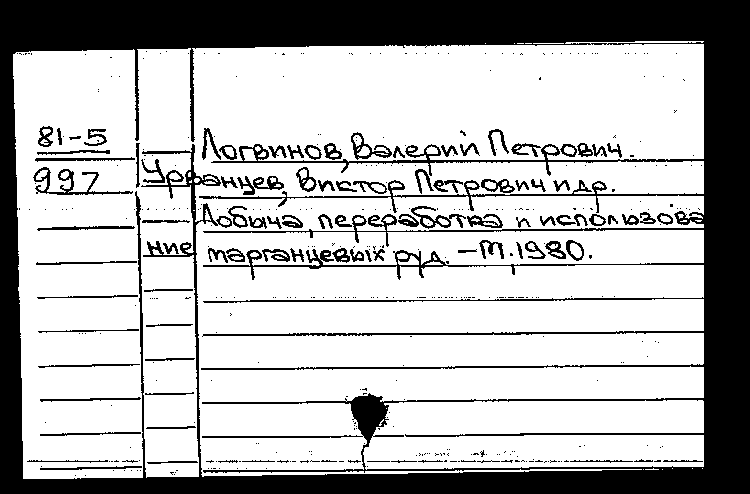 81-5
Логвинов, Валерий Петрович.
997
Урванцев, Виктор Петрович и др.
Добыча, переработка и использова
ние марганцевых руд. – М., 1980.